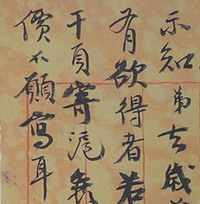 示知弟去歲
有欲得者若
千頁寄滬
價不願寫耳